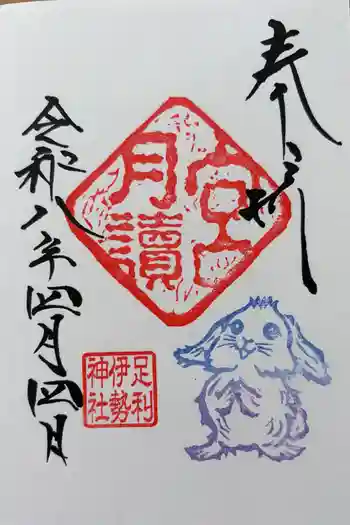 奉拝
月讀宮
足利
伊勢
神社
令和八年四月四日